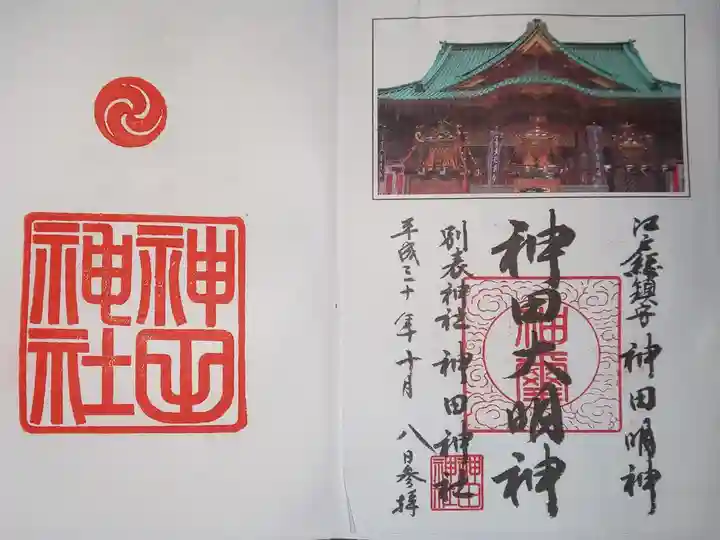 江戸総鎮守 神田明神
神田大明神
別表神社 神田神社
平成三十年十月八日参拝
神田
神社
神田
神社